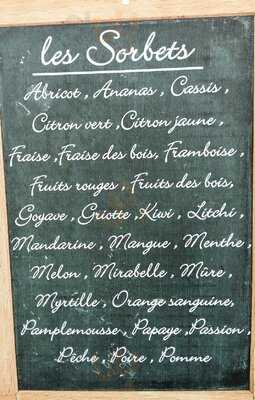 les Sorbets
Abricot , Ananas , Cassis ,
Citron vert ,Citron jaune ,
Fraise ,Fraise des bois, Framboise ,
Fruits rouges , Fruits des bois,
Goyave , Griotte ,Kiwi , Litchi ,
Mandarine , Mangue , Menthe ,
Melon , Mirabelle , Mûre ,
Myrtille , Orange sanguine,
Pamplemousse , Papaye ,Passion ,
Pêche , Poire , Pomme